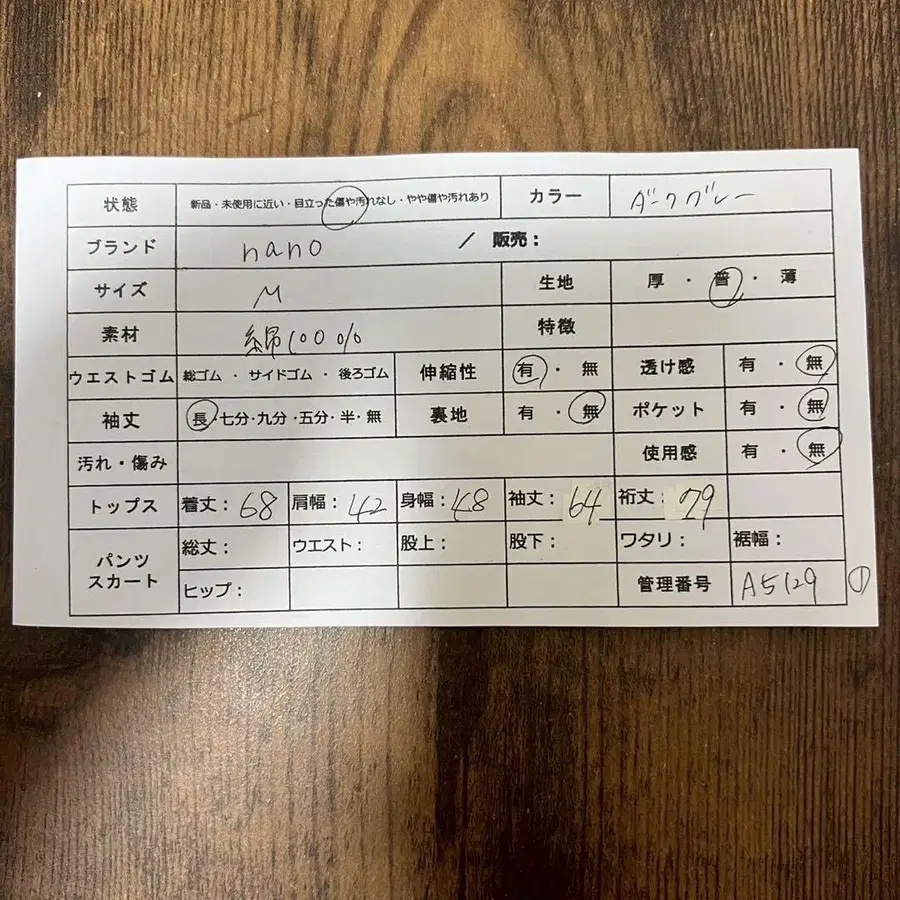 状態 新品・未使用に近い・目立った傷や汚れなし・やや傷や汚れあり カラー ダークグレー
ブランド nano / 販売：
サイズ M 生地 厚 ・ 普 ・ 薄
素材 綿100% 特徴
ウエストゴム 総ゴム ・ サイドゴム ・ 後ろゴム 伸縮性 有 ・ 無 透け感 有 ・ 無
袖丈 長・七分・九分・五分・半・無 裏地 有 ・ 無 ポケット 有 ・ 無
汚れ・傷み 使用感 有 ・ 無
トップス 着丈：68 肩幅：42 身幅：48 袖丈：64 裄丈：79
パンツ スカート 総丈： ウエスト： 股上： 股下： ワタリ： 裾幅：
ヒップ： 管理番号 A5129 ①